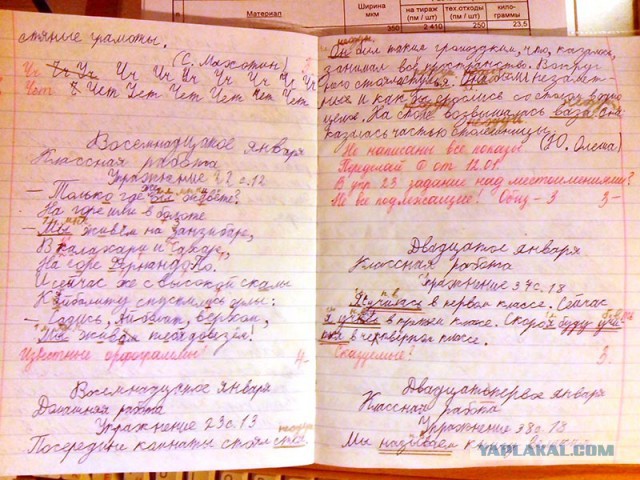 Материал
Ширина мкм
на тираж (пм / шт)
тех.отходы (пм / шт)
кило-граммы
350
2 410
250
23,5
стяные грамоты.
(С. Махотин)
Чч Чч Чч Чч Чч Чч Чч Чч
Чет Чет Чет Чет Чет Чет Чет
Восемнадцатое января
Классная работа
Упражнение 22 с.12
– Только где вы живёте?
На горе или в болоте
– Мы живём на Занзибаре,
В Калахари и Сахаре,
На горе Фернандо-По.
И сейчас же с высокой скалы
К Айболиту спустились орлы:
– Садись, Айболит, верхом,
Мы живо тебя довезём!
Известные орфограммы!
4-
Восемнадцатое января
Домашняя работа
Упражнение 23 с.13
Посередине комнаты стоял стол.
Он был таким громоздким, что, казалось,
занимал всё пространство. Вокруг
него стояли стулья.
и как
На столе возвышалась ваза. Она
казалась частью столешницы.
(Ю. Олеша)
Не написаны все
от 12.01.
В упр 23 задание над местоимениями?
Не все подлежащие! Общ – 3
3-
Двадцатое января
Классная работа
Упражнение 37 с.18
Я училась в первом классе. Сейчас
я учусь в третьем классе. Скоро я буду учи-
ться в четвертом классе.
Сказуемые!
3
Двадцать первое января
Классная работа
Упражнение 38 с.18
Мы называем
YAPLAKAL.COM